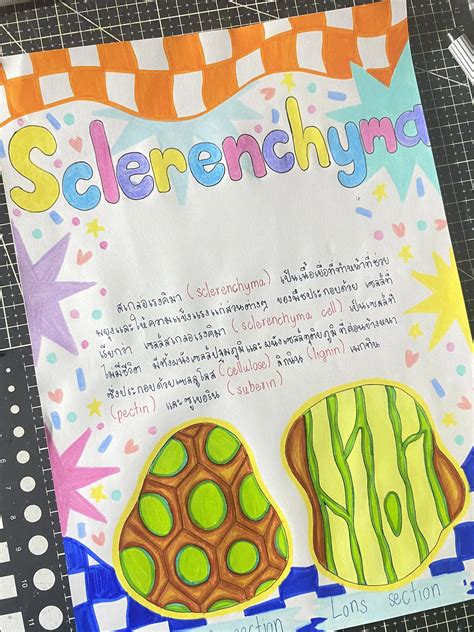 Sclerenchyma
สเกลอเรงคิมา (sclerenchyma) เป็นเนื้อเยื่อที่ทำหน้าที่ช่วย
พยุงและให้ความแข็งแรงแก่ส่วนต่างๆ ของพืชประกอบด้วย เซลล์ที่
เรียกว่า เซลล์สเกลอเรงคิมา (sclerenchyma cell) เป็นเซลล์ที่
ไม่มีชีวิต มีทั้งผนังเซลล์ปฐมภูมิ และ ผนังเซลล์ทุติยภูมิ ที่ค่อนข้างหนา
ซึ่งประกอบด้วยเซลลูโลส (cellulose) ลิกนิน (lignin) เพกทิน
(pectin) และซูเบอริน (suberin)
section
Lons section